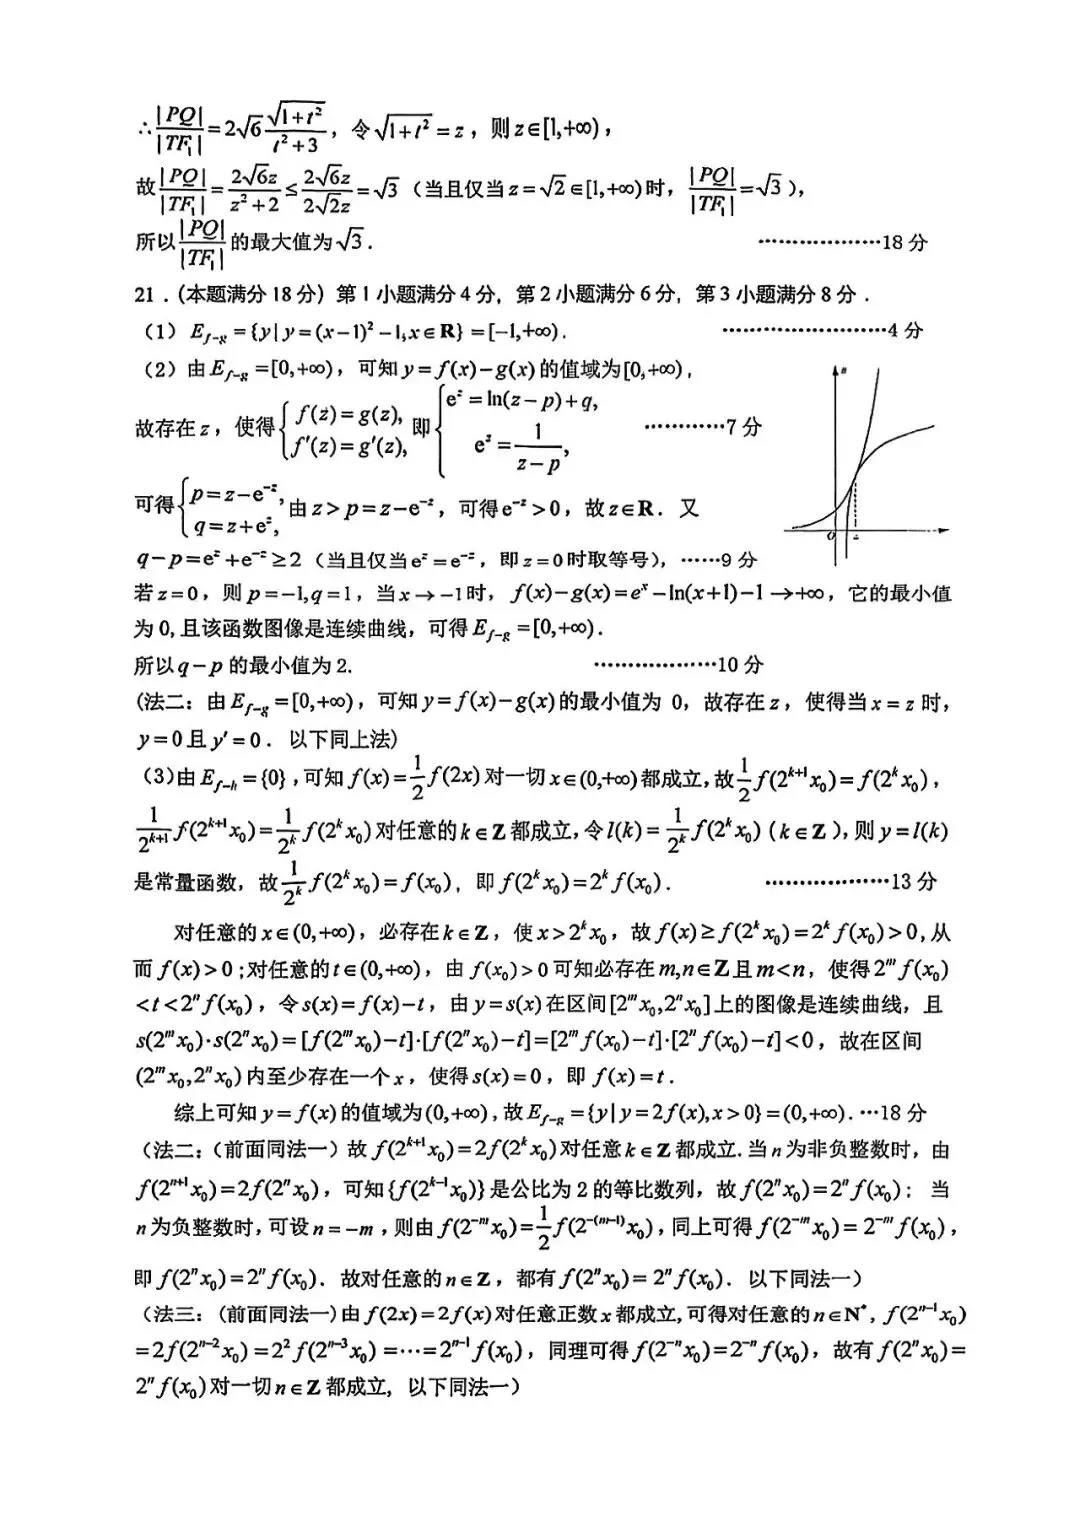 ∴|PQ|/|TF₁|=2√6·√(1+t²)/(t²+3), 令√(1+t²)=z, 则z∈[1,+∞),
故|PQ|/|TF₁|=2√6z/(z²+2)≤2√6z/(2√2z)=√3 (当且仅当z=√2∈[1,+∞)时, |PQ|/|TF₁|=√3),
所以|PQ|/|TF₁|的最大值为√3. ………………18分
21.(本题满分18分) 第1小题满分4分, 第2小题满分6分, 第3小题满分8分.
(1) E_{f-g}={y|y=(x-1)²-1,x∈R}=[-1,+∞). ……………………4分
(2) 由E_{f-g}=[0,+∞), 可知y=f(x)-g(x)的值域为[0,+∞),
故存在z, 使得{f(z)=g(z), f′(z)=g′(z), 即{e^z=ln(z-p)+q, e^z=1/(z-p), …………7分
可得{p=z-e^{-z}, q=z+e^z, 由z>p=z-e^{-z}, 可得e^{-z}>0, 故z∈R. 又
q-p=e^z+e^{-z}≥2 (当且仅当e^z=e^{-z}, 即z=0时取等号), ……9分
若z=0, 则p=-1,q=1, 当x→-1时, f(x)-g(x)=e^x-ln(x+1)-1→+∞, 它的最小值
为0,且该函数图像是连续曲线, 可得E_{f-g}=[0,+∞).
所以q-p的最小值为2. ………………10分
(法二: 由E_{f-g}=[0,+∞), 可知y=f(x)-g(x)的最小值为 0, 故存在z, 使得当x=z时,
y=0且y′=0. 以下同上法)
(3)由E_{f-h}={0},可知f(x)=1/2 f(2x)对一切x∈(0,+∞)都成立,故1/2 f(2^{k+1}x₀)=f(2^k x₀),
1/2^{k+1} f(2^{k+1}x₀)=1/2^k f(2^k x₀)对任意的k∈Z都成立,令l(k)=1/2^k f(2^k x₀)(k∈Z),则y=l(k)
是常量函数, 故1/2^k f(2^k x₀)=f(x₀), 即f(2^k x₀)=2^k f(x₀). ………………13分
对任意的x∈(0,+∞), 必存在k∈Z, 使x>2^k x₀, 故f(x)≥f(2^k x₀)=2^k f(x₀)>0,从
而f(x)>0;对任意的t∈(0,+∞), 由f(x₀)>0可知必存在m,n∈Z且m<n, 使得2^m f(x₀)
<t<2^n f(x₀), 令s(x)=f(x)-t, 由y=s(x)在区间[2^m x₀,2^n x₀]上的图像是连续曲线, 且
s(2^m x₀)·s(2^n x₀)=[f(2^m x₀)-t]·[f(2^n x₀)-t]=[2^m f(x₀)-t]·[2^n f(x₀)-t]<0, 故在区间
(2^m x₀,2^n x₀)内至少存在一个x, 使得s(x)=0, 即f(x)=t.
综上可知y=f(x)的值域为(0,+∞),故E_{f-g}={y|y=2f(x),x>0}=(0,+∞). …18分
(法二:(前面同法一)故f(2^{k+1}x₀)=2f(2^k x₀)对任意k∈Z都成立.当n为非负整数时, 由
f(2^{n+1}x₀)=2f(2^n x₀), 可知{f(2^{k-1}x₀)}是公比为2的等比数列, 故f(2^n x₀)=2^n f(x₀); 当
n为负整数时,可设n=-m,则由f(2^{-m}x₀)=1/2 f(2^{-(m-1)}x₀),同上可得f(2^{-m}x₀)=2^{-m}f(x₀),
即f(2^n x₀)=2^n f(x₀). 故对任意的n∈Z, 都有f(2^n x₀)=2^n f(x₀). 以下同法一)
(法三:(前面同法一)由f(2x)=2f(x)对任意正数x都成立,可得对任意的n∈N*, f(2^{n-1}x₀)
=2f(2^{n-2}x₀)=2²f(2^{n-3}x₀)=…=2^{n-1}f(x₀), 同理可得f(2^{-n}x₀)=2^{-n}f(x₀), 故有f(2^n x₀)=
2^n f(x₀)对一切n∈Z都成立, 以下同法一)